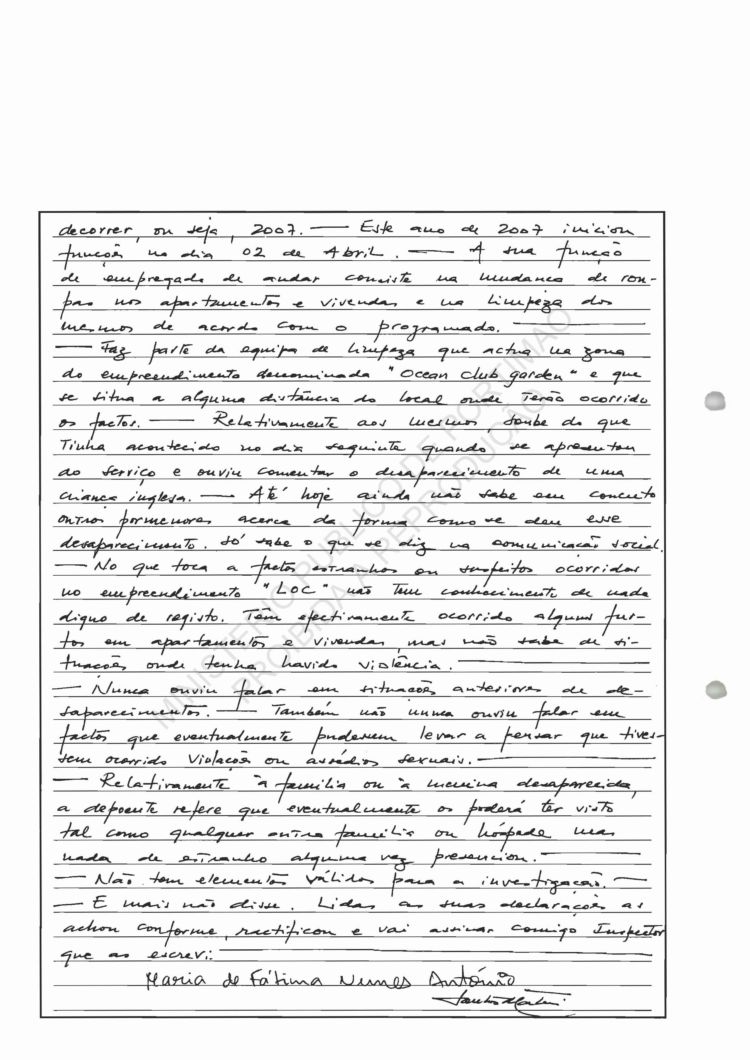 decorrer, ou seja, 2007. — Este ano de 2007 iniciou
funções no dia 02 de Abril. — A sua função
de empregada de andar consiste na mudança de rou-
pas nos apartamentos e vivendas e na limpeza dos
mesmos de acordo com o programado. —
— Faz parte da equipa de limpeza que actua na zona
do empreendimento denominada "Ocean club garden" e que
se situa a alguma distância do local onde terão ocorrido
os factos. — Relativamente aos mesmos, soube do que
tinha acontecido no dia seguinte quando se apresentou
ao serviço e ouviu comentar o desaparecimento de uma
criança inglesa. — Até hoje ainda não sabe em concreto
outros pormenores acerca da forma como se deu esse
desaparecimento. Só sabe o que se diz na comunicação social.
— No que toca a factos estranhos ou suspeitos ocorridos
no empreendimento "LOC" não tem conhecimento de nada
digno de registo. Têm efectivamente ocorrido alguns fur-
tos em apartamentos e vivendas, mas não sabe de si-
tuações onde tenha havido violência. —
— Nunca ouviu falar em situações anteriores de de-
saparecimentos. — Também não nunca ouviu falar em
factos que eventualmente pudessem levar a pensar que tives-
sem ocorrido violações ou assédios sexuais. —
— Relativamente à família ou à menina desaparecida,
a depoente refere que eventualmente os poderá ter visto
tal como qualquer outra família ou hóspede mas
nada de estranho alguma vez presenciou. —
— Não tem elementos válidos para a investigação. —
— E mais não disse. Lidas as suas declarações as
achou conforme, ractificou e vai assinar comigo Inspector
que as escrevi: —
Maria de Fátima Nunes António
MINISTÉRIO PÚBLICO DE PORTIMÃO
PROIBIDA A REPRODUÇÃO